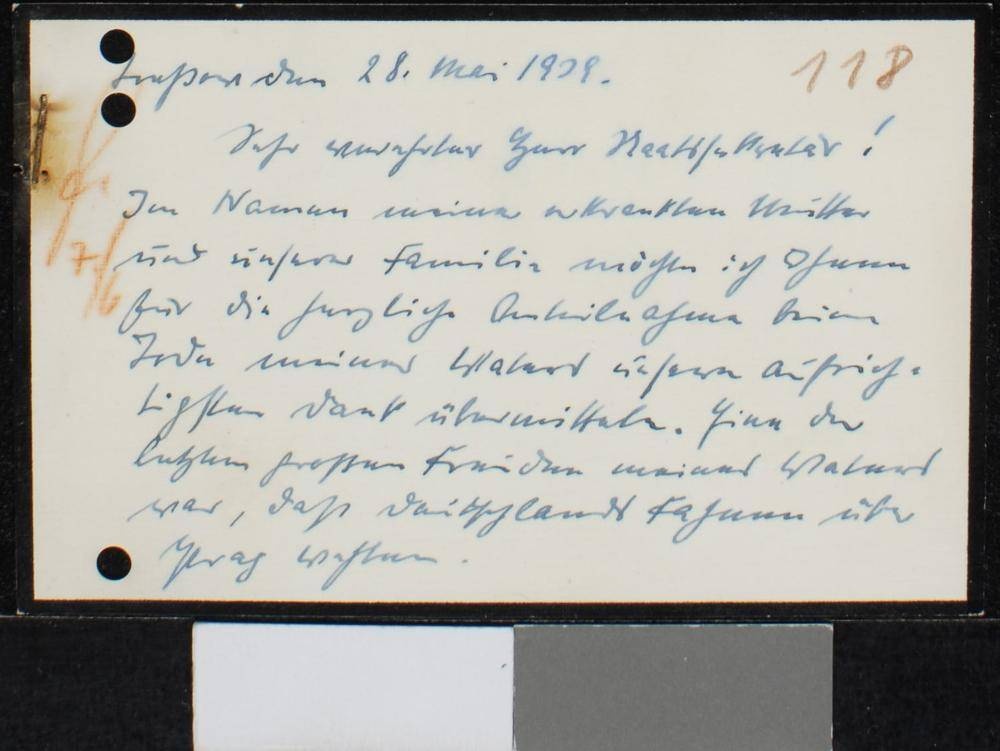 den 28. Mai 1939.
118
Sehr verehrter Herr Staatssekretär!
Im Namen meiner erkrankten Mutter
und unserer Familie möchte ich Ihnen
für die herzliche Anteilnahme beim
Tode meines Vaters unseren aufrich-
tigsten Dank übermitteln. Eine der
letzten grossen Freuden meines Vaters
war, dass Deutschlands Fahnen über
Prag wehten.
7/6